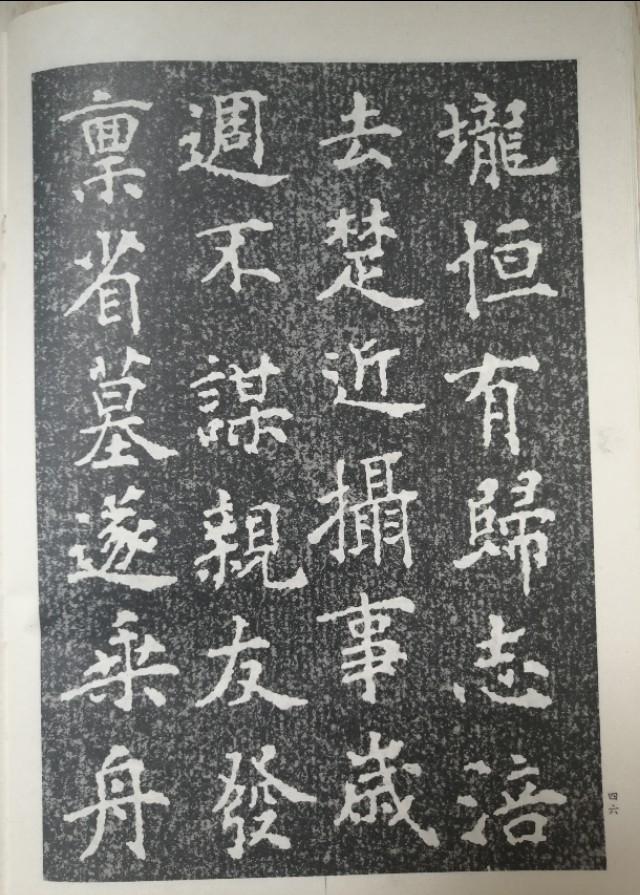 壠恒有歸志涪
去楚近攝事歲
週不謀親友發
稟省墓遂乘舟
四六